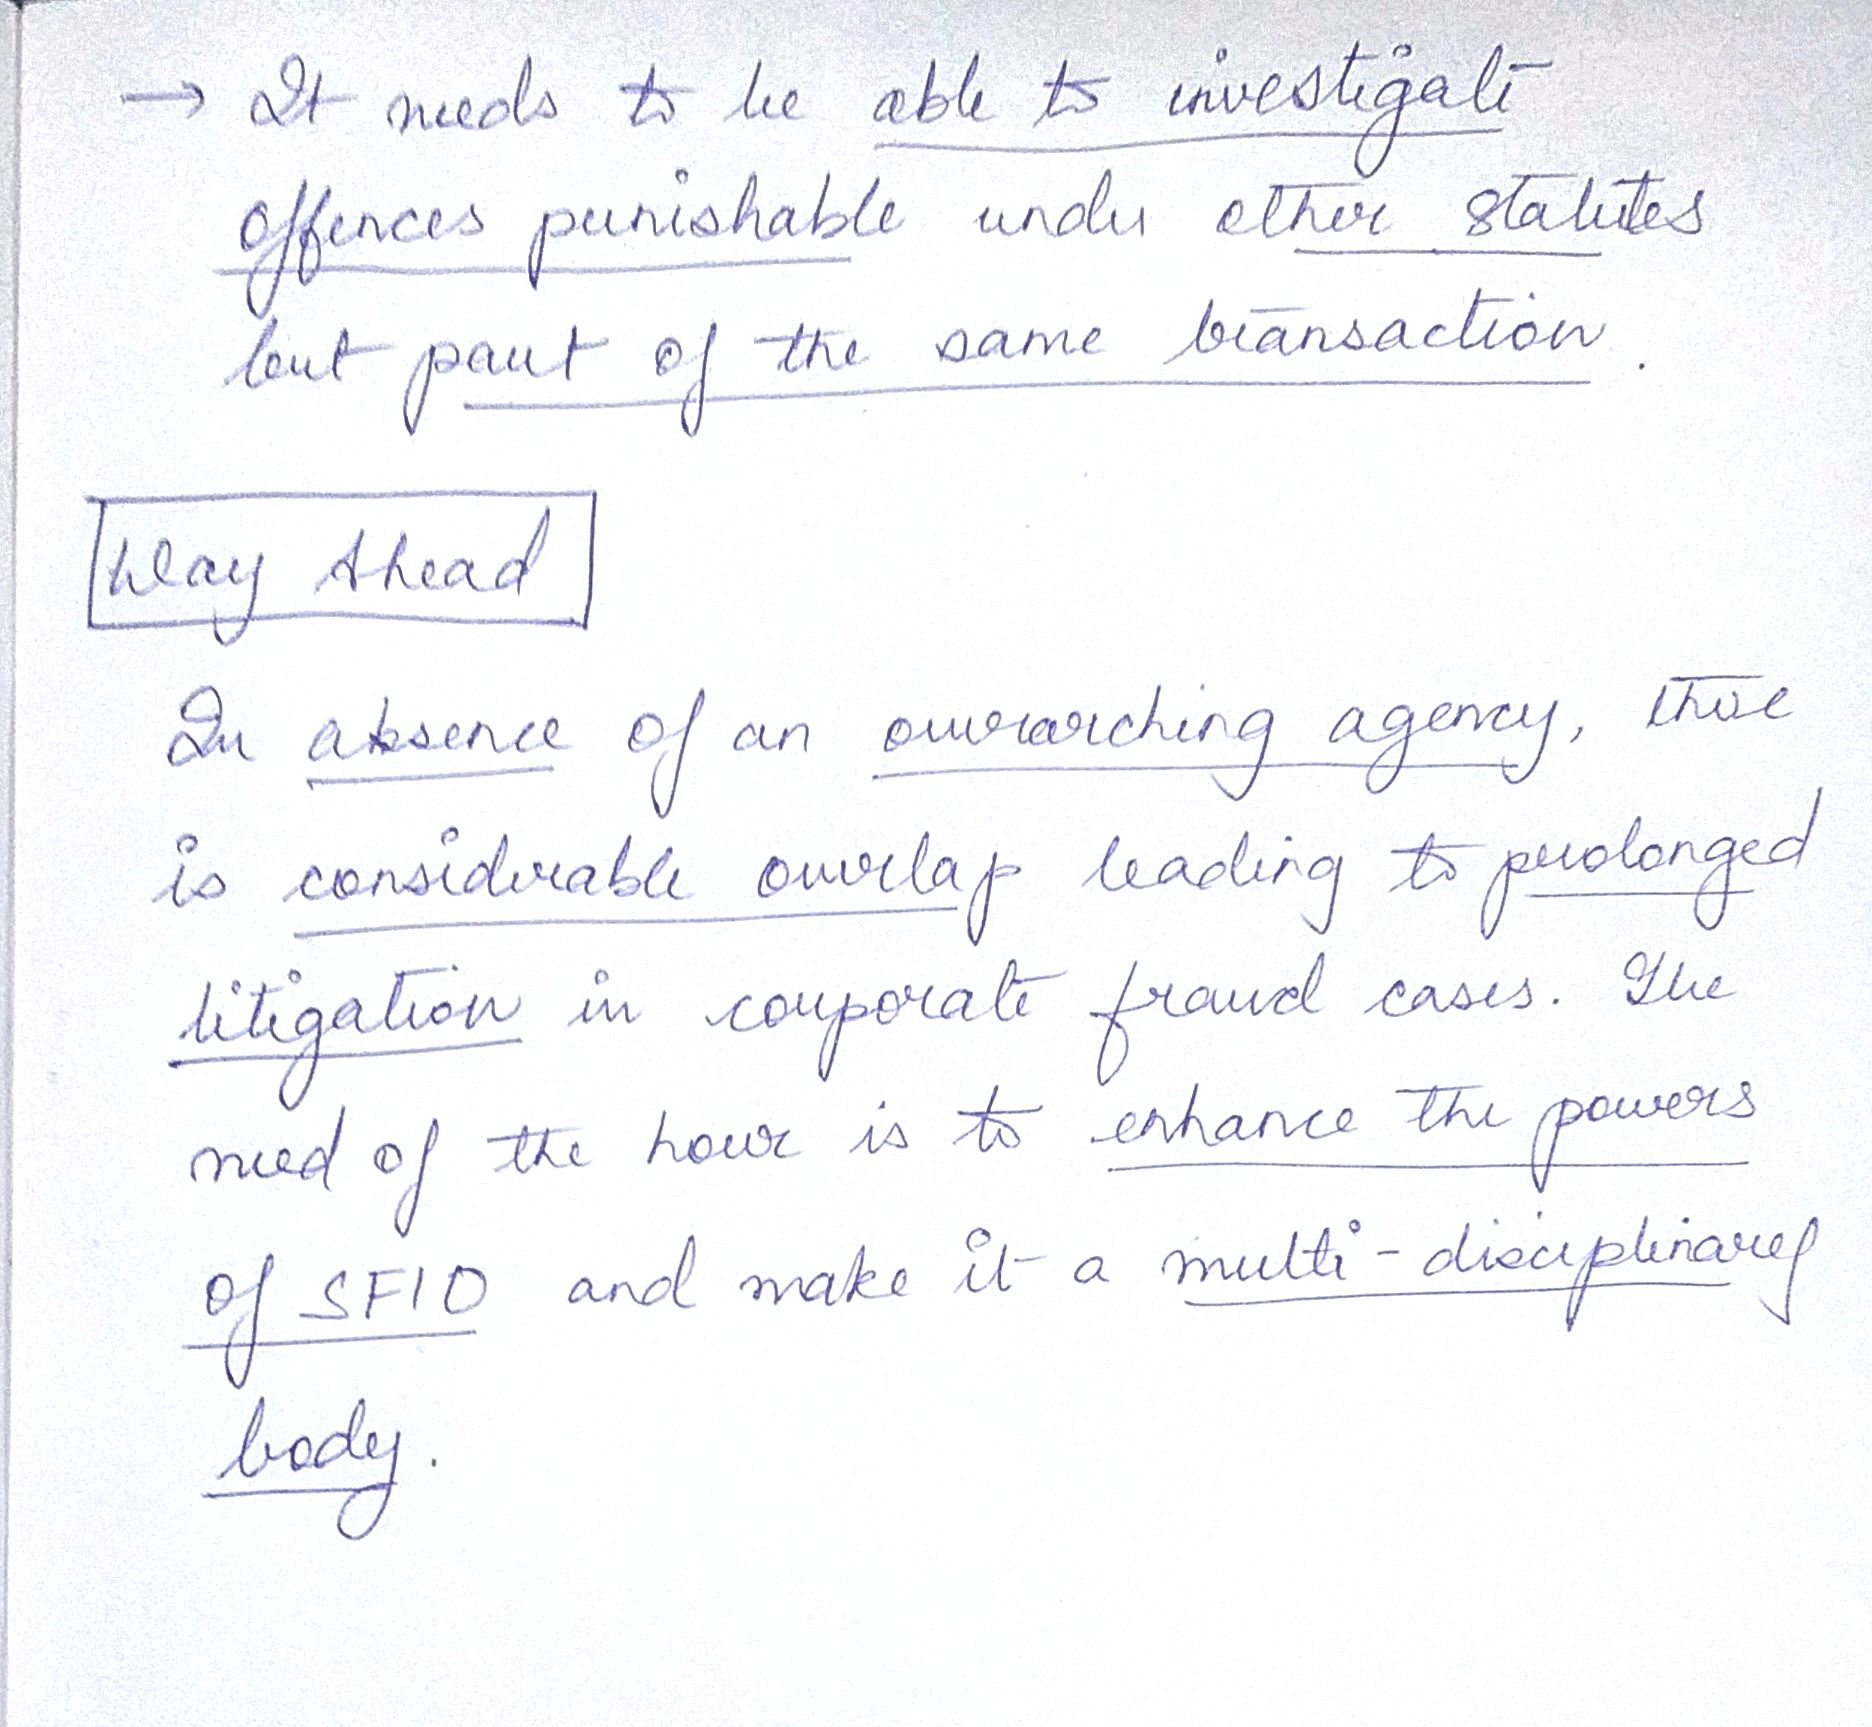 → It needs to be able to investigate
offences punishable under other statutes
but part of the same transaction.
Way Ahead
In absence of an overarching agency, there
is considerable overlap leading to prolonged
litigation in corporate fraud cases. The
need of the hour is to enhance the powers
of SFIO and make it a multi-disciplinary
body.